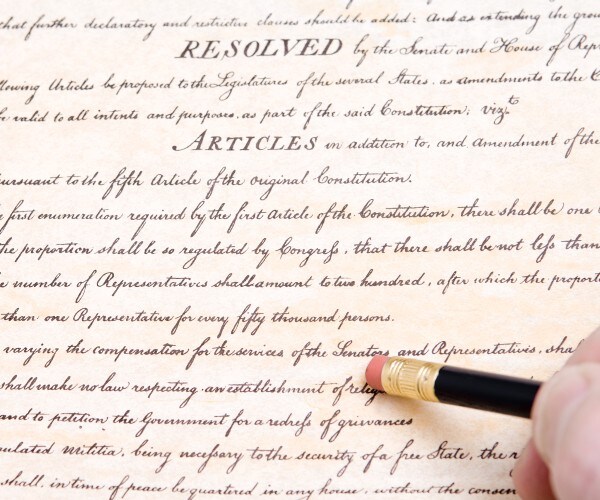 that further declaratory and restrictive clauses should be added: And as extending the grou
RESOLVED by the Senate and House of Repr
llowing Articles be proposed to the Legislatures of the several States, as amendments to the C
be valid to all intents and purposes, as part of the said Constitution; vizt
ARTICLES in addition to, and amendment of the
pursuant to the fifth Article of the original Constitution.
first enumeration required by the first Article of the Constitution, there shall be one
the proportion shall be so regulated by Congreſs, that there shall be not leſs than
number of Representatives shall amount to two hundred, after which the proporti
than one Representative for every fifty thousand persons.
varying the compensation for the services of the Senators and Representatives, shal
shall make no law respecting an establishment of relig
and to petition the Government for a redreſs of grievances
gulated militia, being neceſsary to the security of a free State, the r
shall, in time of peace be quartered in any house, without the consen